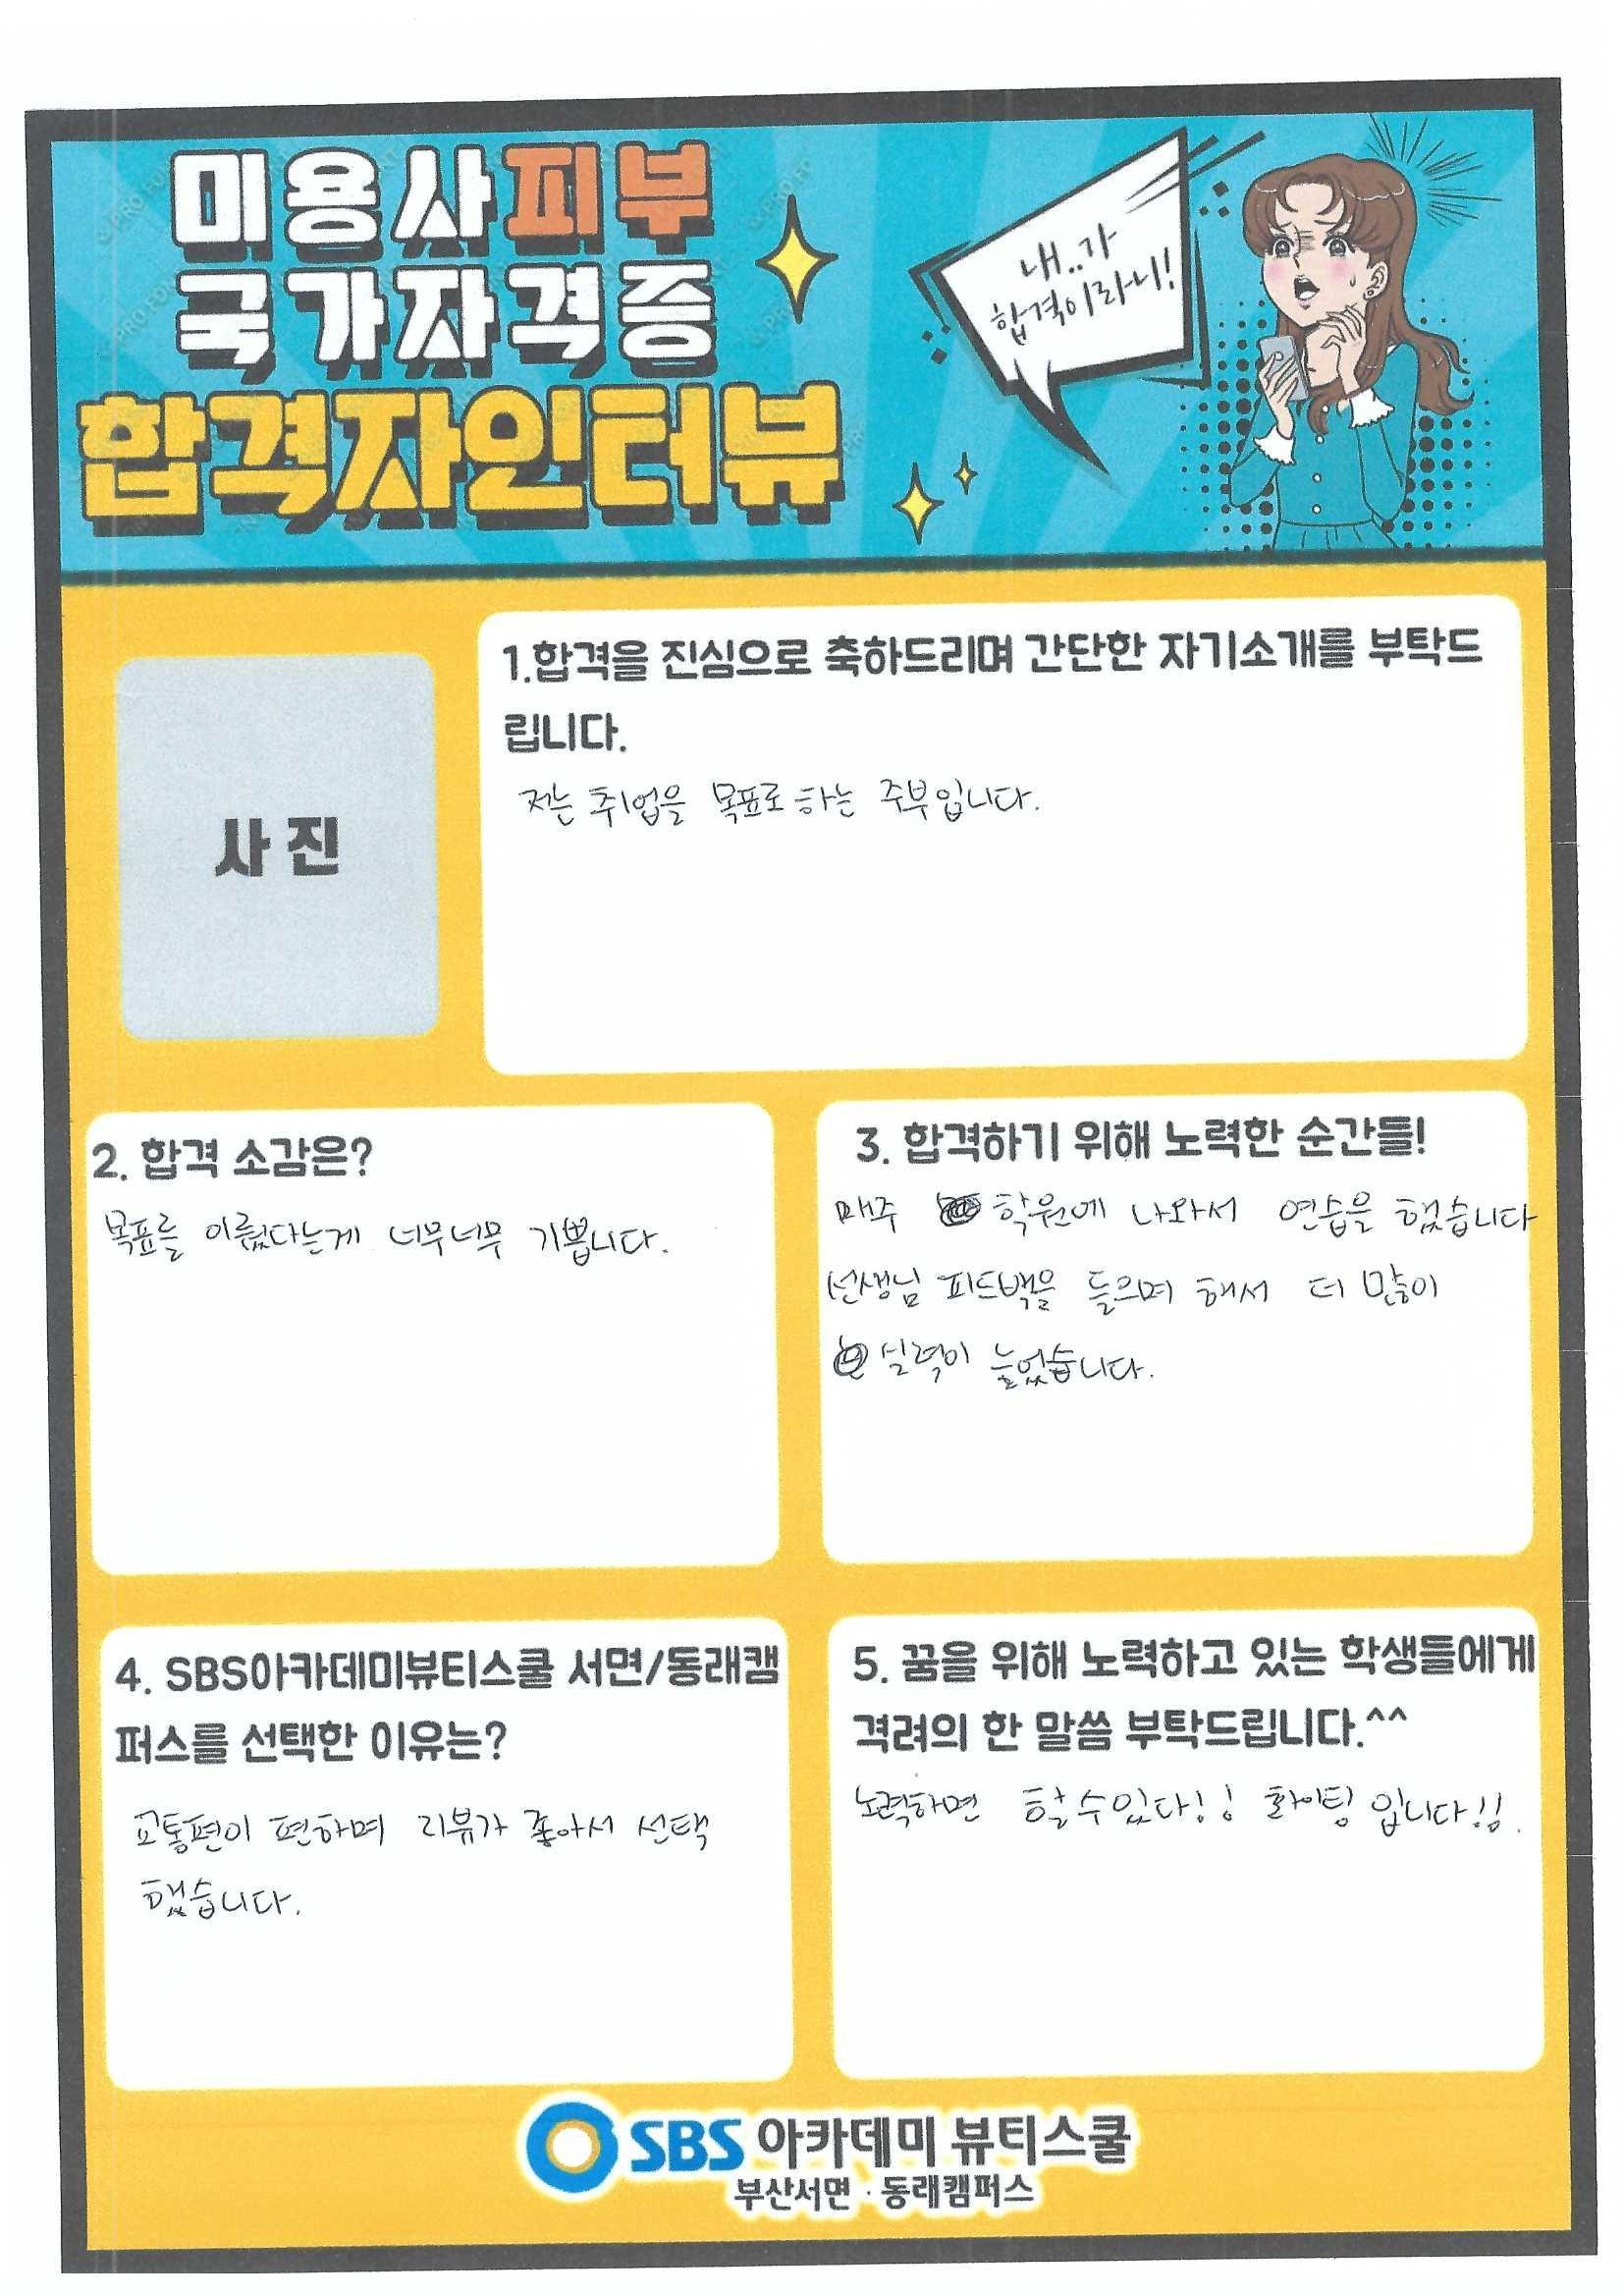 미용사피부
국가자격증
합격자인터뷰
내..가
합격이라니!
사진
1.합격을 진심으로 축하드리며 간단한 자기소개를 부탁드
립니다.
저는 취업을 목표로 하는 주부입니다.
2. 합격 소감은?
목표를 이뤘다는게 너무너무 기쁩니다.
3. 합격하기 위해 노력한 순간들!
매주 학원에 나와서 연습을 했습니다
선생님 피드백을 들으며 해서 더 많이
실력이 늘었습니다.
4. SBS아카데미뷰티스쿨 서면/동래캠
퍼스를 선택한 이유는?
교통편이 편하며 리뷰가 좋아서 선택
했습니다.
5. 꿈을 위해 노력하고 있는 학생들에게
격려의 한 말씀 부탁드립니다.^^
노력하면 할수있다!! 화이팅 입니다!!.
SBS 아카데미 뷰티스쿨
부산서면·동래캠퍼스